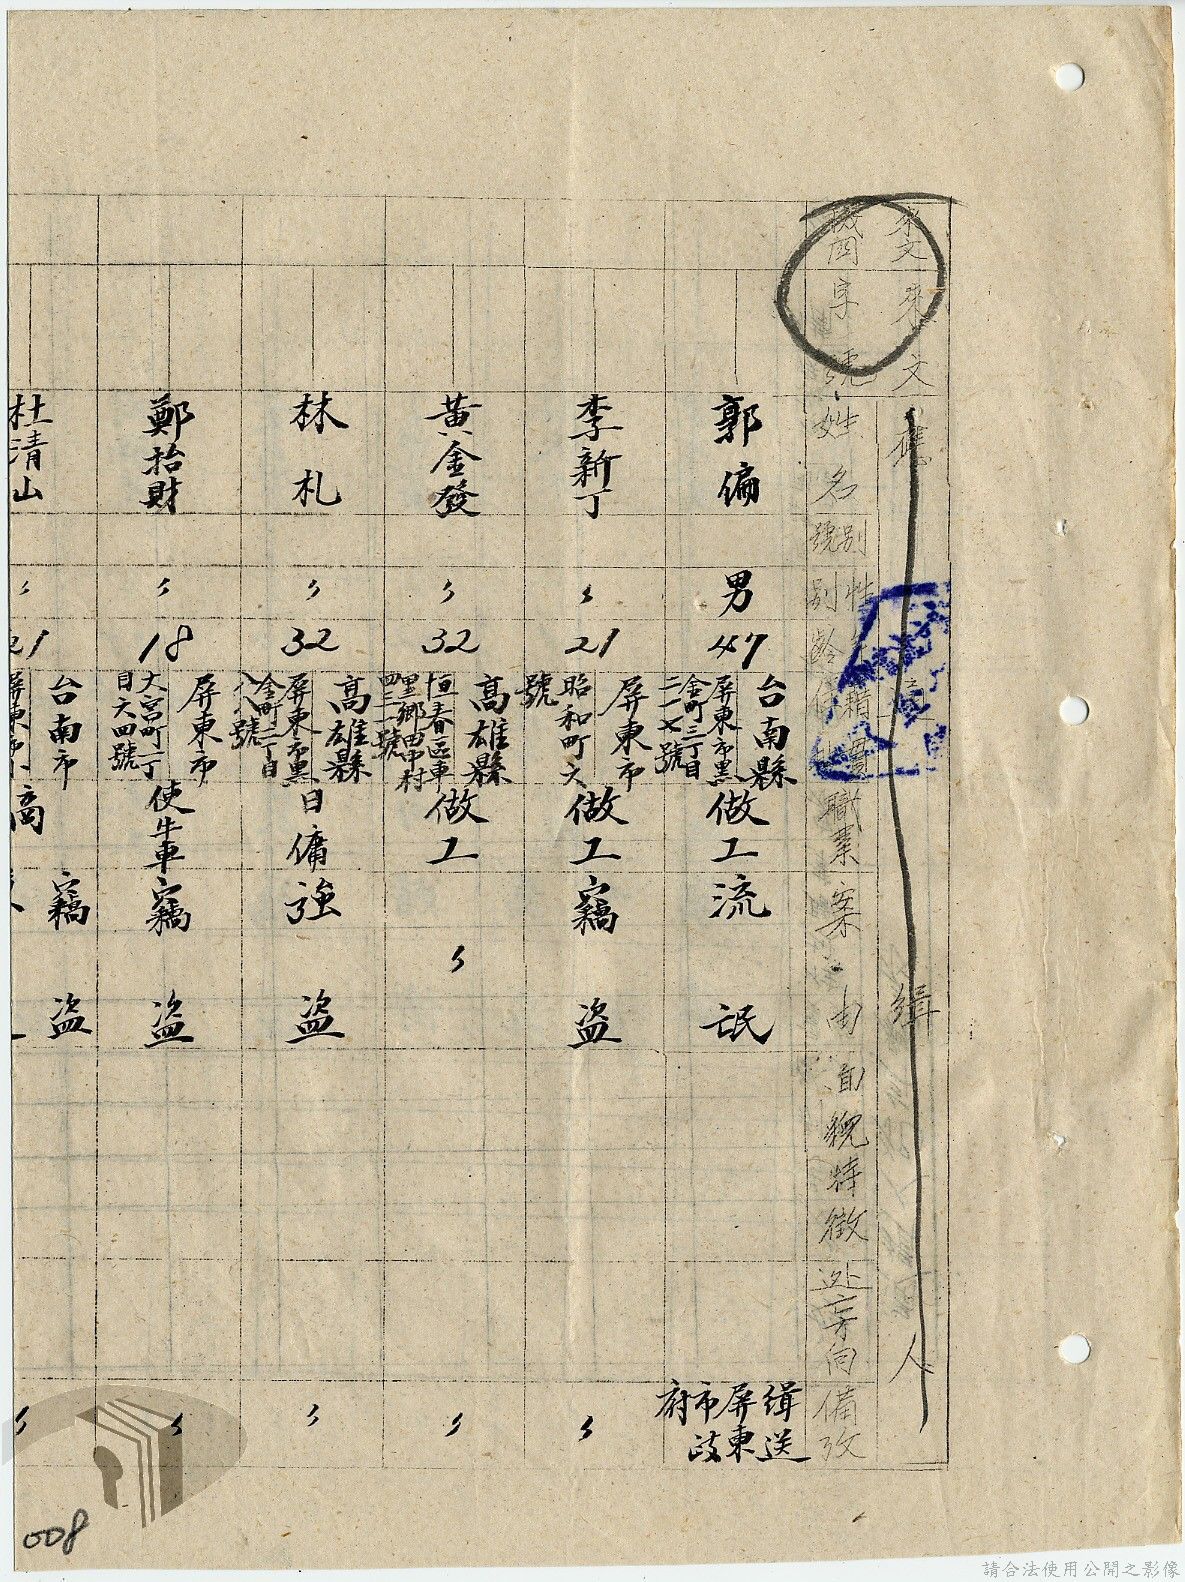 來文
機関
來文
字號
應
緝
人
姓名
別號
性別
年齡
籍貫
住
職業
案由
面貌特徵
逃亡方向
備攷
郭偏
男
47
台南縣
屏東市黑
金町三丁目
二一七號
做工
流氓
緝送
屏東
市政
府
李新丁
〃
21
屏東市
昭和町六
號
做工
竊盜
〃
黃金發
〃
32
高雄縣
恒春區車
里鄉田中村
四三一號
做工
〃
〃
林札
〃
32
高雄縣
屏東市黑
金町二丁目
八八號
日傭
強盜
〃
鄭抬財
〃
18
屏東市
大宮町一丁
目六四號
使牛車
竊盜
〃
杜清山
〃
21
台南市
屏東市
商
竊盜
〃
008
請合法使用公開之影像